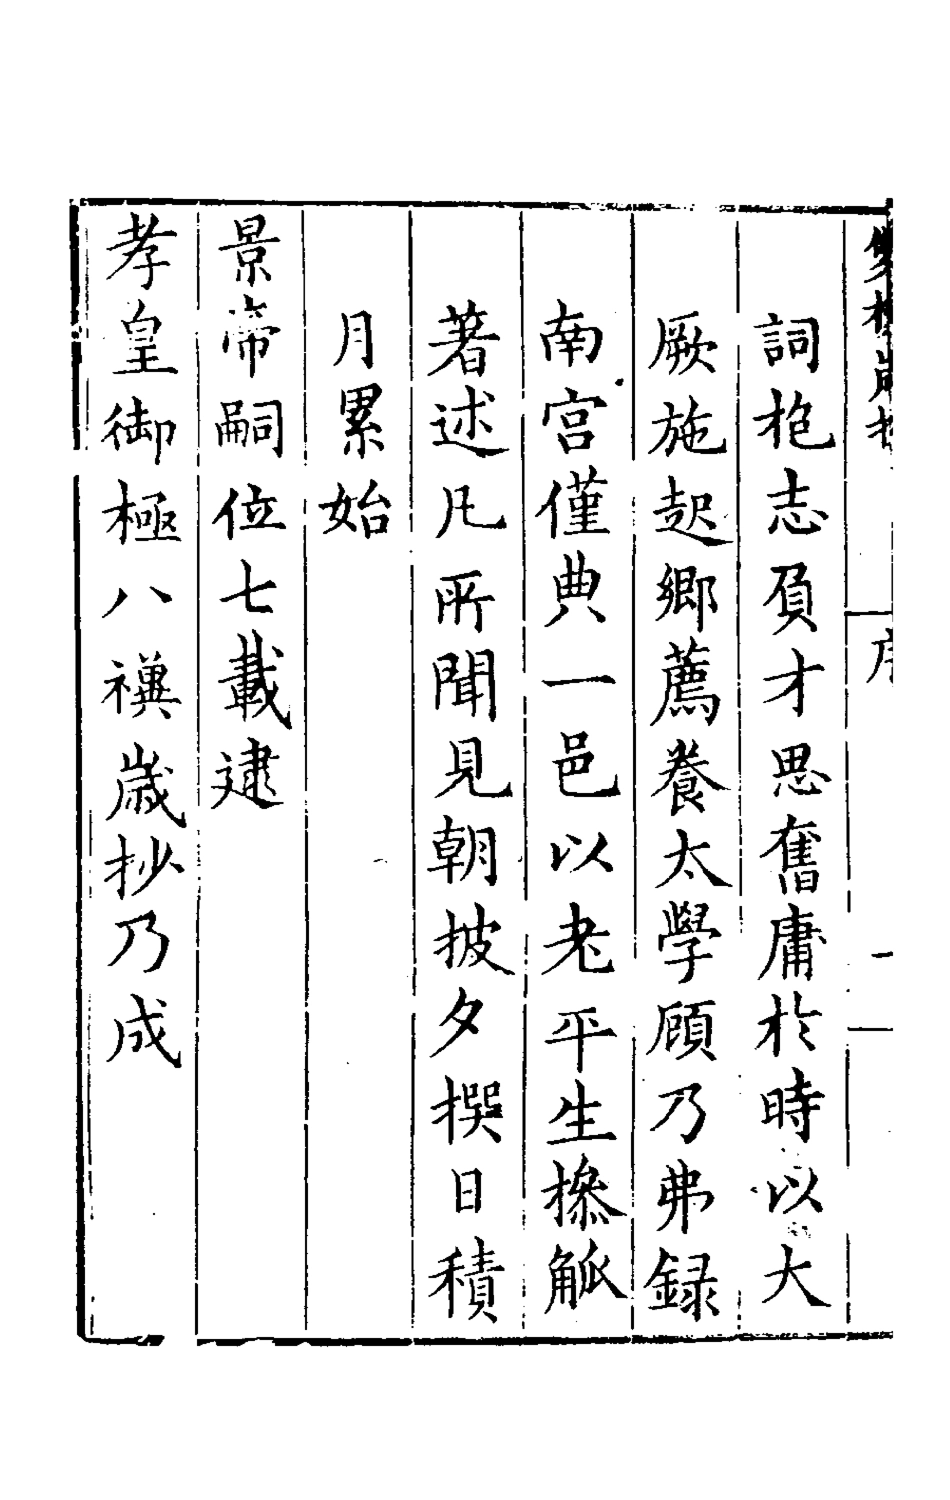 雙槐歲抄 序 一
詞抱志負才思奮庸於時以大
厥施起鄉薦養太學顧乃弗録
南宮僅典一邑以老平生摻觚
著述凡所聞見朝披夕撰日積
月累始
景帝嗣位七載逮
孝皇御極八禩歲抄乃成